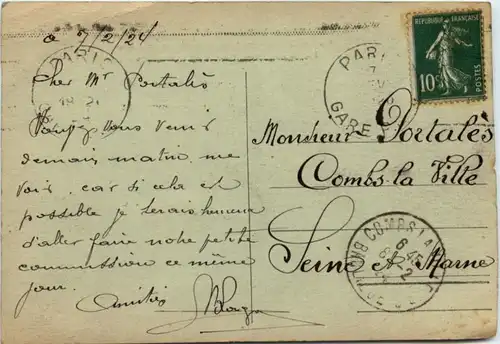 a 7/2/24
Cher Mr Portalès
Voulez vous venir
demain matin me
voir car si cela est
possible je serais heureux
d'aller faire notre petite
commission ce même
jour.
Amitiés
REPUBLIQUE FRANÇAISE
10c
POSTES
PARIS
PARIS
GARE
Monsieur Portalès
Combs-la-Ville
Seine et Marne
COMBS-LA-VILLE
6 45
8-2